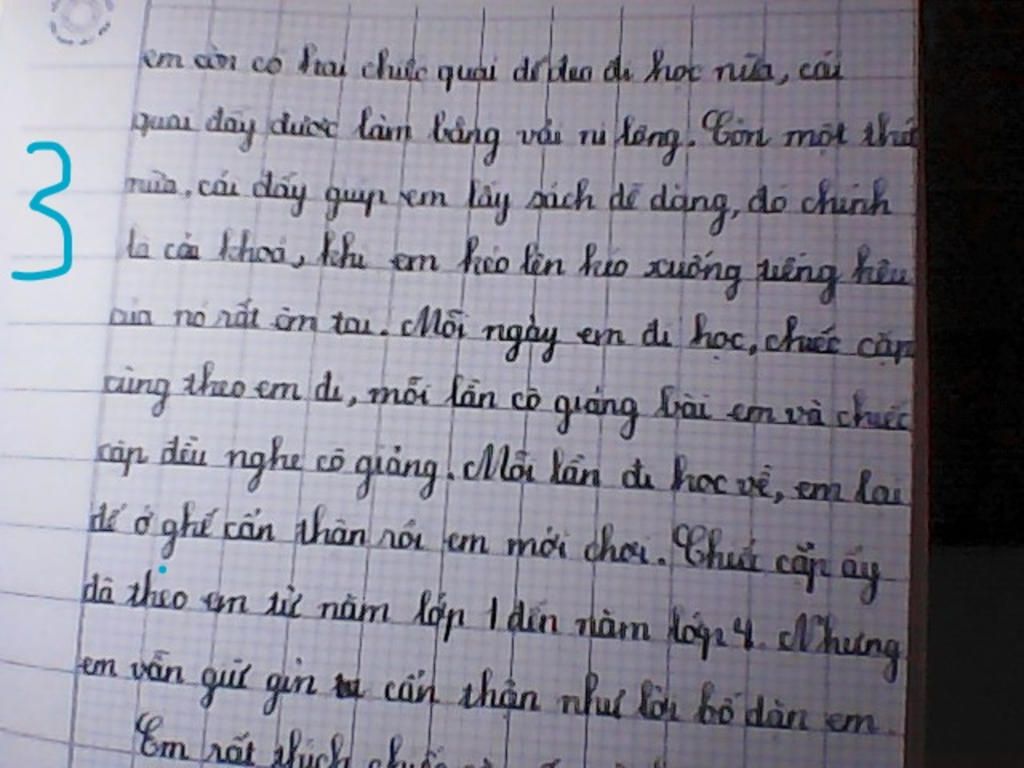 em còn có hai chiếc quai để đeo đi học nữa, cái
quai đấy được làm bằng vải ni lông. Còn một thứ
nữa, cái đấy giúp em lấy sách dễ dàng, đó chính
là cái khoá, khi em kéo lên kéo xuống tiếng kêu
của nó rất êm tai. Mỗi ngày em đi học, chiếc cặp
cùng theo em đi, mỗi lần cô giảng bài em và chiếc
cặp đều nghe cô giảng. Mỗi lần đi học về, em lại
để ở ghế cẩn thận rồi em mới chơi. Chiếc cặp ấy
đã theo em từ năm lớp 1 đến năm lớp 4. Nhưng
em vẫn giữ gìn cẩn thận như lời bố dặn em.
Em rất thích
3